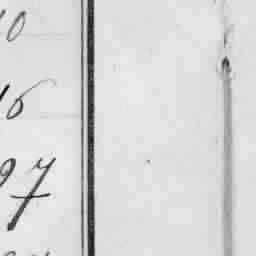 10
16
97